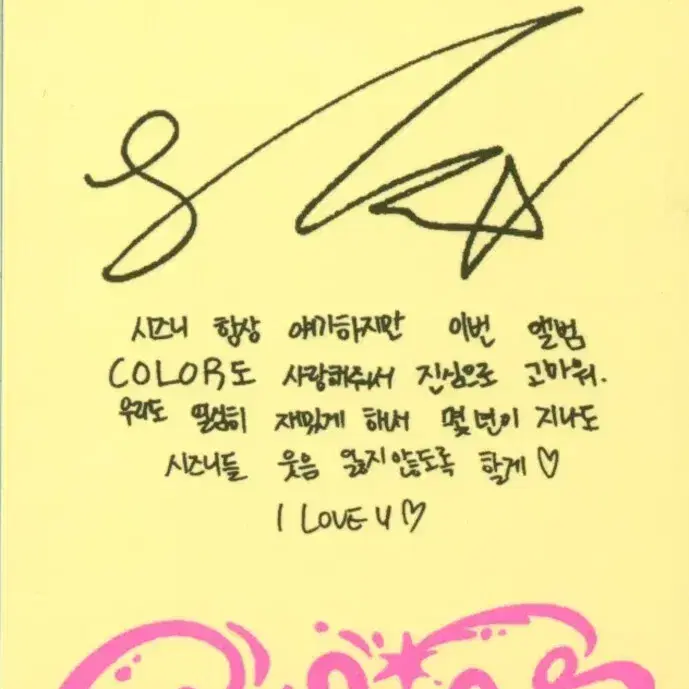 시즈니 항상 얘기하지만 이번 앨범
COLOR도 사랑해줘서 진심으로 고마워.
우리도 열심히 재밌게 해서 몇 년이 지나도
시즈니들 웃음 잃지 않도록 할게♡
I LOVE U♡